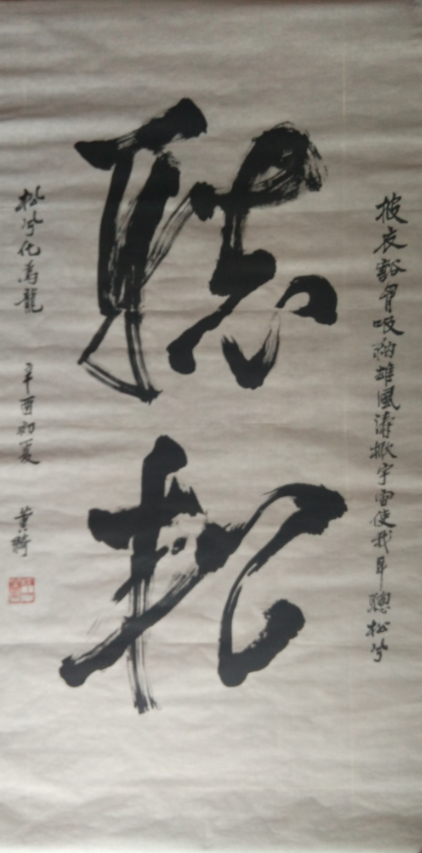 披衣豁胷吸納雄風濤掀宇宙使我耳聰松兮
聽松
松兮化為龍
辛酉初夏
黄綺